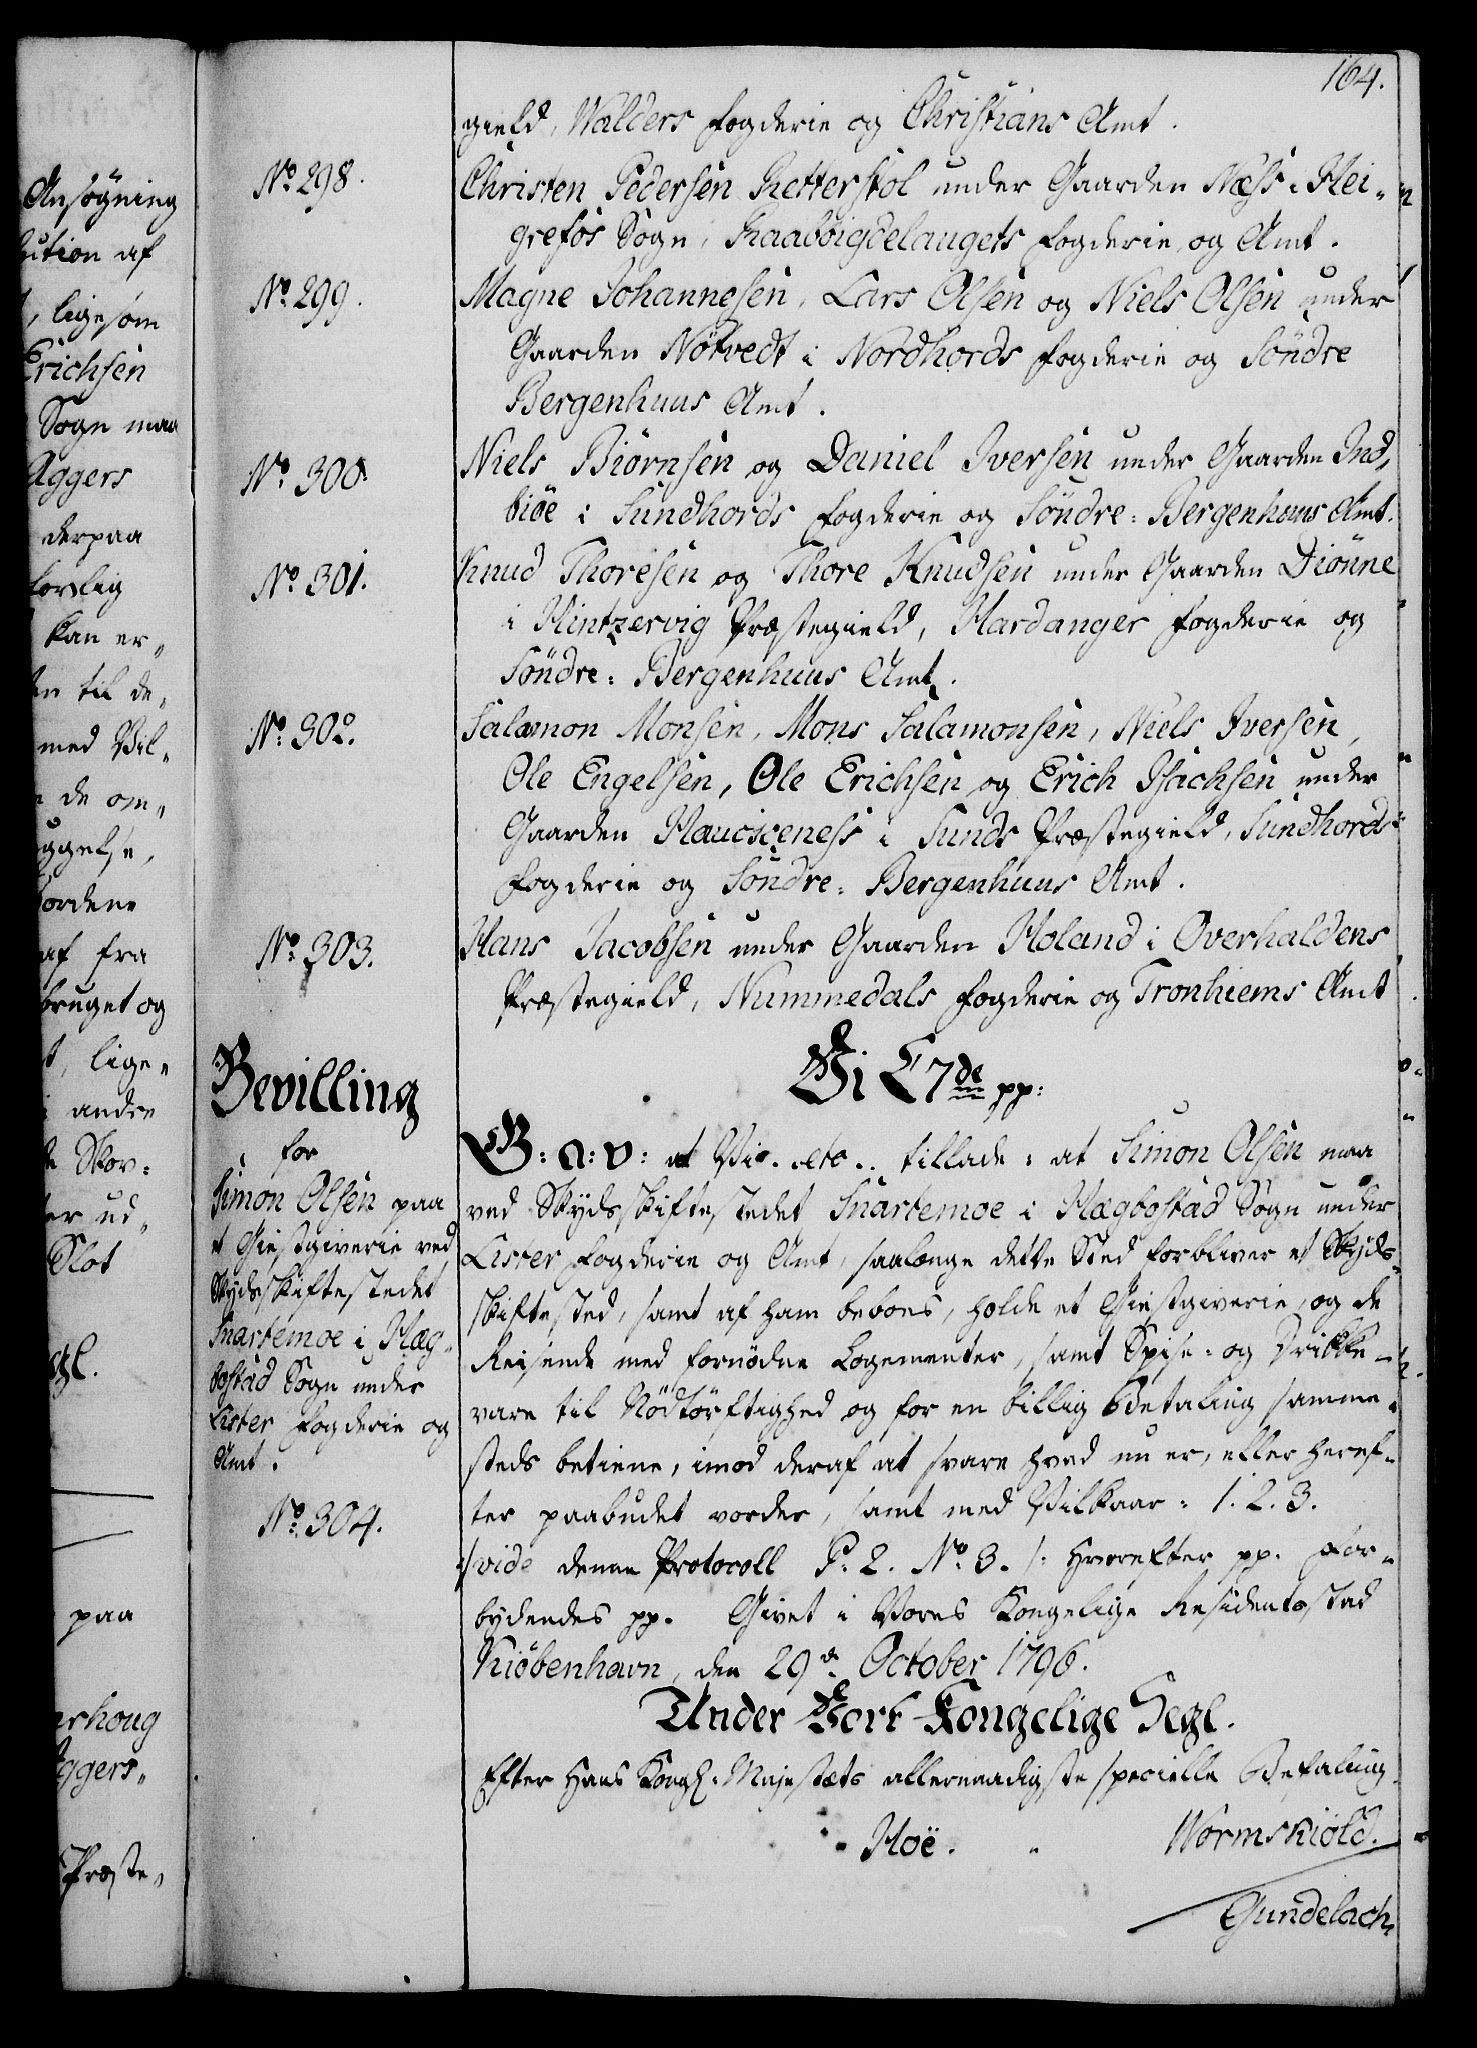 164.
gield, Walders Fogderie og Christians Amt.
No 298.
Christen Pedersen Retterstol under Gaarden Næss i Hei-
grefos Sogn, Raabøigdelaugets Fogderie og Amt.
No 299.
Magne Johannesen, Lars Olsen og Niels Olsen under
Gaarden Nötvedt i Nordhords Fogderie og Söndre
Bergenhuus Amt.
No 300.
Niels Biörnsen og Daniel Iversen under Gaarden Ind,
biöe i Sundhords Fogderie og Söndre-Bergenhuus Amt.
No 301.
Knud Thoresen og Thore Knudsen under Gaarden Diönne
i Kintzervig Præstegield, Hardanger Fogderie og
Söndre-Bergenhuus Amt.
No 302.
Salamon Monsen, Mons Salamonsen, Niels Iversen,
Ole Engelsen, Ole Erichsen og Erich Isachsen under
Gaarden i Sunds Præstegield, Sundhords
Fogderie og Söndre-Bergenhuus Amt.
No 303.
Hans Jacobsen under Gaarden Holand i Overhaldens
Præstegield, Nummedals Fogderie og Tronhiems Amt
Vi C 7de pp:
Bevilling
for
Simon Olsen paa
et Giestgiverie ved
Skydsskiftestedet
Snartemoe i Hæg-
bostad Sogn under
Lister Fogderie og
Amt.
No. 304.
G: A: V: at Vi .. etc .. tillade: at Simon Olsen maa
ved Skydsskiftestedet Snartemoe i Hægbostad Sogn under
Lister Fogderie og Amt, saalænge dette Sted forbliver et Skyds-
skiftested, samt af ham beboes, holde et Giestgiverie, og de
Reisende med fornødne Logementer, samt Spise- og Drikke-
vare til Nödtörftighed og for en billig Betaling samme-
steds betiene, imod deraf at svare hvad nu er, eller heref-
ter paabudet vorder, samt med Vilkaar: 1. 2. 3.
:/vide denne Protocoll P: 2. No 3. /: Hvorefter pp. For-
bydendes pp. Givet i Vores Kongelige Residentsstad
Kiöbenhavn, den 29de October 1796.
Under Vort Kongelige Segl.
Efter Hans Kongl: Majestæts allernaadigste specielle Befaling
Hoë. Wormskiöld.
Gundelach.
Ansøgning
ution af
, ligesom
Erichsen
Sogn maa
Aggers
derpaa
kan er-
til de-
med Vil-
de om-
uggelse,
fordene
af fra
bruget og
t, lige-
andre
Skov-
er ud-
Slot
gl.
paa
rhoug
ggers-
Præste-